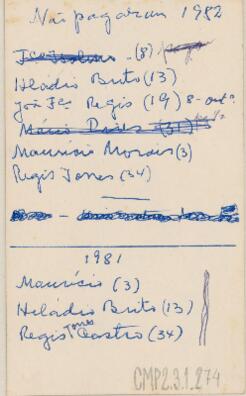 Não pagaram 1982
(8) pago
Heládio Brito (13)
Regis (19) 8-out.
Mário (31)
Maurísio Morais (3)
Regis Torres (34)
1981
Maurísio (3)
Heládio Brito (13)
Regis Torres Castro (34)
CMP2.3.1.274